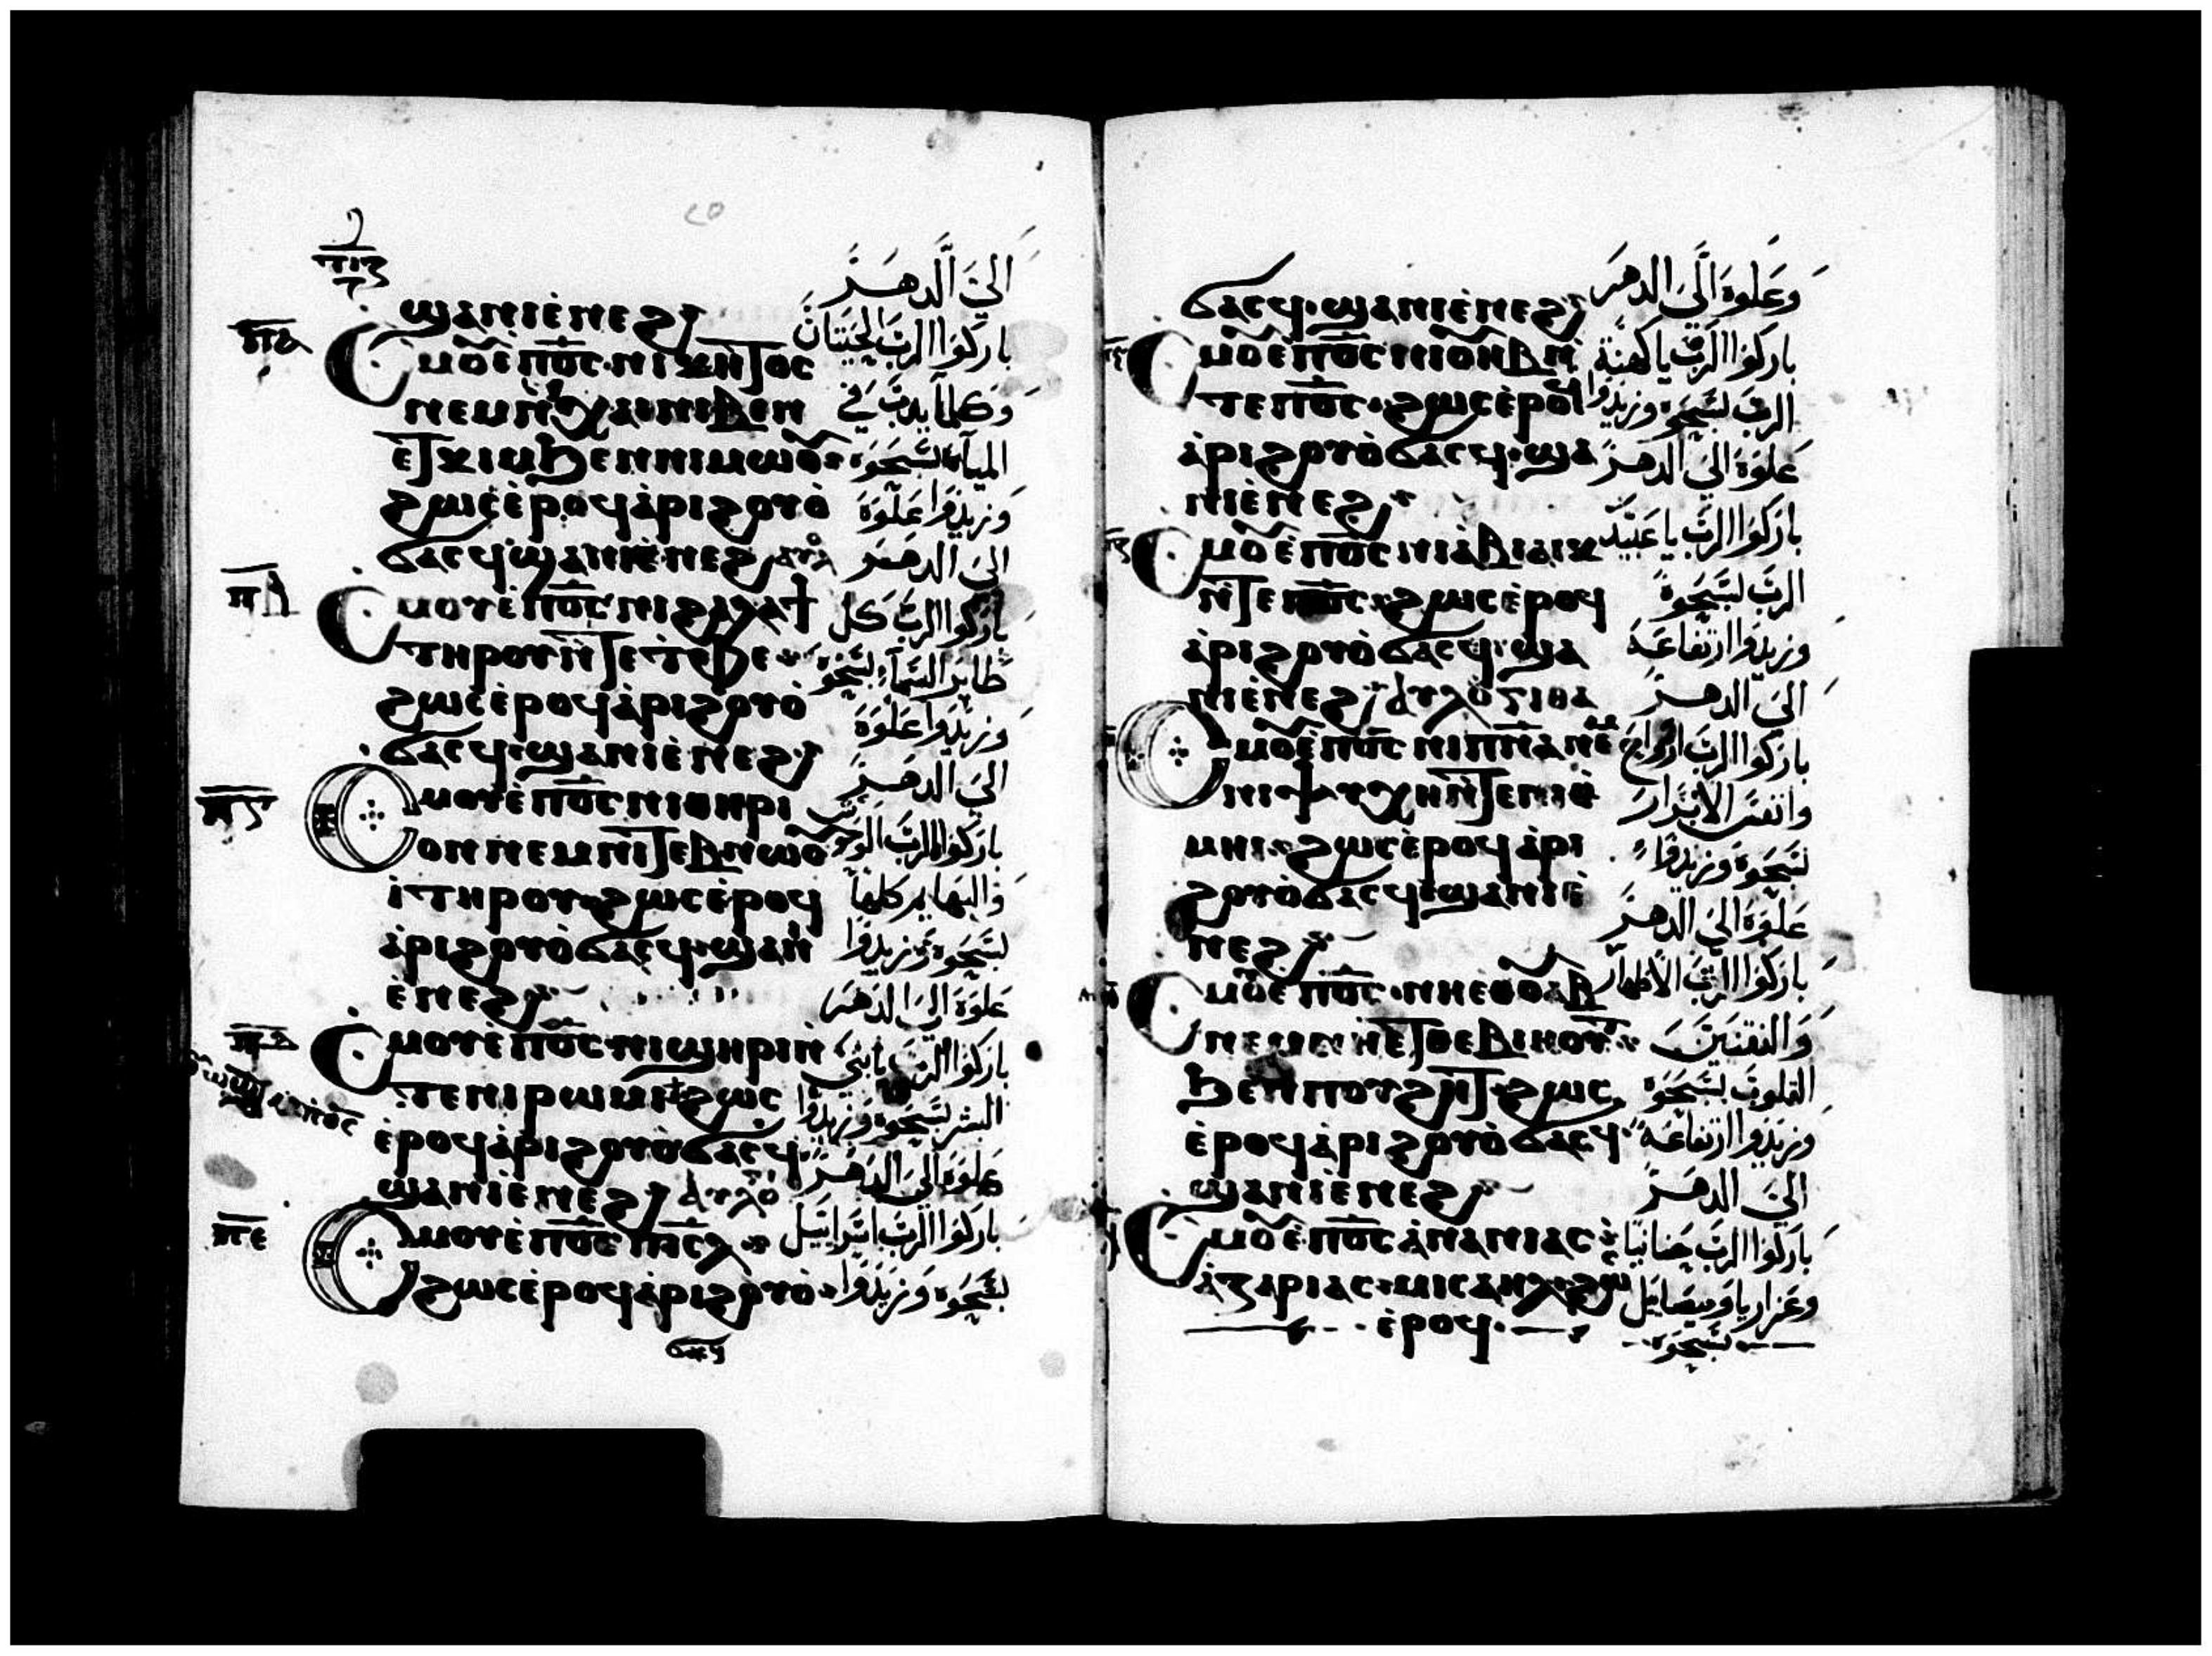 ϣⲁⲛⲓⲉ̀ⲛⲉϩ
الي الدهر
ⲥⲙⲟⲩ ⲉ̀ⲡⲟ̅ⲥ̅ · ⲛⲓⲕⲏⲧⲟⲥ
باركوا الرب الحيتان
ⲛⲉⲙ ⲛ̀ⲭⲁⲓ ⲛⲓⲃⲉⲛ
وكلما يدب في
ⲉⲧⲕⲓⲙ ϧⲉⲛ ⲛⲓⲙⲱⲟⲩ
المياه سبحوه
ϩⲱⲥ ⲉ̀ⲣⲟϥ ⲁ̀ⲣⲓϩⲟⲩⲟ̀
وزيدوا علوه
ϭⲁⲥϥ ϣⲁⲛⲓⲉ̀ⲛⲉϩ
الي الدهر
ⲡⲇ
ⲥⲙⲟⲩ ⲉ̀ⲡⲟ̅ⲥ̅ ⲛⲓϩⲁⲗⲁϯ
باركوا الرب كل
ⲧⲏⲣⲟⲩ ⲛ̀ⲧⲉ ⲧⲫⲉ
طاير السماء سبحوه
ϩⲱⲥ ⲉ̀ⲣⲟϥ ⲁ̀ⲣⲓϩⲟⲩⲟ̀
وزيدوا علوه
ϭⲁⲥϥ · ϣⲁⲛⲓⲉ̀ⲛⲉϩ
الي الدهر
ⲥⲙⲟⲩ ⲉ̀ⲡⲟ̅ⲥ̅ ⲛⲓⲑⲏⲣⲓ
باركوا الرب
ⲟⲛ ⲛⲉⲙ ⲛⲓⲧⲉⲃⲛⲱⲟⲩ
والبهايم كلها
ⲓ̀ ⲧⲏⲣⲟⲩ · ϩⲱⲥ ⲉ̀ⲣⲟϥ
سبحوه وزيدوا
ⲁ̀ⲣⲓϩⲟⲩⲟ̀ ϭⲁⲥϥ · ϣⲁⲛⲓ
علوه الي الدهر
ⲉ̀ⲛⲉϩ
ⲥⲙⲟⲩ ⲉ̀ⲡⲟ̅ⲥ̅ · ⲛⲓϣⲏⲣⲓ ⲛ̀
باركوا الرب يابني
ⲧⲉ ⲛⲓⲣⲱⲙⲓ ϩⲱⲥ
البشر سبحوه وزيدوا
ⲉ̀ⲣⲟϥ ⲁ̀ⲣⲓϩⲟⲩⲟ̀ ϭⲁⲥϥ ·
علوه الي الدهر
ϣⲁⲛⲓⲉ̀ⲛⲉϩ
ⲡⲉ
ⲥⲙⲟⲩ ⲉ̀ⲡⲟ̅ⲥ̅ ⲡⲓⲥ̅ⲗ̅
باركوا الرب اسراييل
ϩⲱⲥ ⲉ̀ⲣⲟϥ ⲁ̀ⲣⲓϩⲟⲩⲟ̀
سبحوه وزيدوا
ϭⲁⲥϥ
ϭⲁⲥϥ · ϣⲁⲛⲓⲉ̀ⲛⲉϩ
وعلوه الي الدهر
ⲥⲙⲟⲩ ⲉ̀ⲡⲟ̅ⲥ̅ ⲛⲓⲟⲩⲏⲃ ⲛ̀
باركوا الرب يا كهنة
ⲧⲉ ⲡⲟ̅ⲥ̅ · ϩⲱⲥ ⲉ̀ⲣⲟϥ
الرب سبحوه وزيدوا
ⲁ̀ⲣⲓϩⲟⲩⲟ̀ ϭⲁⲥϥ · ϣⲁ
علوه الي الدهر
ⲛⲓⲉ̀ⲛⲉϩ
ⲥⲙⲟⲩ ⲉ̀ⲡⲟ̅ⲥ̅ ⲛⲓⲉ̀ⲃⲓⲁⲓⲕ
باركوا الرب يا عبيد
ⲛ̀ⲧⲉ ⲡⲟ̅ⲥ̅ · ϩⲱⲥ ⲉ̀ⲣⲟϥ
الرب سبحوه
ⲁ̀ⲣⲓϩⲟⲩⲟ̀ ϭⲁⲥϥ · ϣⲁ
وزيدوا ارتفاعه
ⲛⲓⲉ̀ⲛⲉϩ
الي الدهر
ⲥⲙⲟⲩ ⲉ̀ⲡⲟ̅ⲥ̅ ⲛⲓⲡ̅ⲛ̅ⲁ ⲛⲉⲙ
باركوا الرب ارواح
ⲛⲓⲯⲩⲭⲏ ⲛ̀ⲧⲉ ⲛⲓⲑ
وانفس الابرار
ⲙⲏⲓ · ϩⲱⲥ ⲉ̀ⲣⲟϥ ⲁ̀ⲣⲓ
سبحوه وزيدوا
ϩⲟⲩⲟ̀ ϭⲁⲥϥ · ϣⲁⲛⲓⲉ̀
علوه الي الدهر
ⲛⲉϩ
ⲥⲙⲟⲩ ⲉ̀ⲡⲟ̅ⲥ̅ · ⲛⲏⲉⲑⲟⲩⲁⲃ
باركوا الرب الاطهار
ⲛⲉⲙ ⲛⲏⲉⲧⲑⲉⲃⲓⲏⲟⲩⲧ
ϧⲉⲛ ⲡⲟⲩϩⲏⲧ · ϩⲱⲥ
القلوب سبحوه
ⲉ̀ⲣⲟϥ ⲁ̀ⲣⲓϩⲟⲩⲟ̀ ϭⲁⲥϥ
وزيدوا ارتفاعه
ϣⲁⲛⲓⲉ̀ⲛⲉϩ
الي الدهر
ⲥⲙⲟⲩ ⲉ̀ⲡⲟ̅ⲥ̅ ⲁ̀ⲛⲁⲛⲓⲁⲥ
باركوا الرب حنانيا
ⲁ̀ⲍⲁⲣⲓⲁⲥ · ⲙⲓⲥⲁⲏⲗ · ϩⲱⲥ
وعزاريا وميصاييل
ⲉ̀ⲣⲟϥ ·
سبحوه